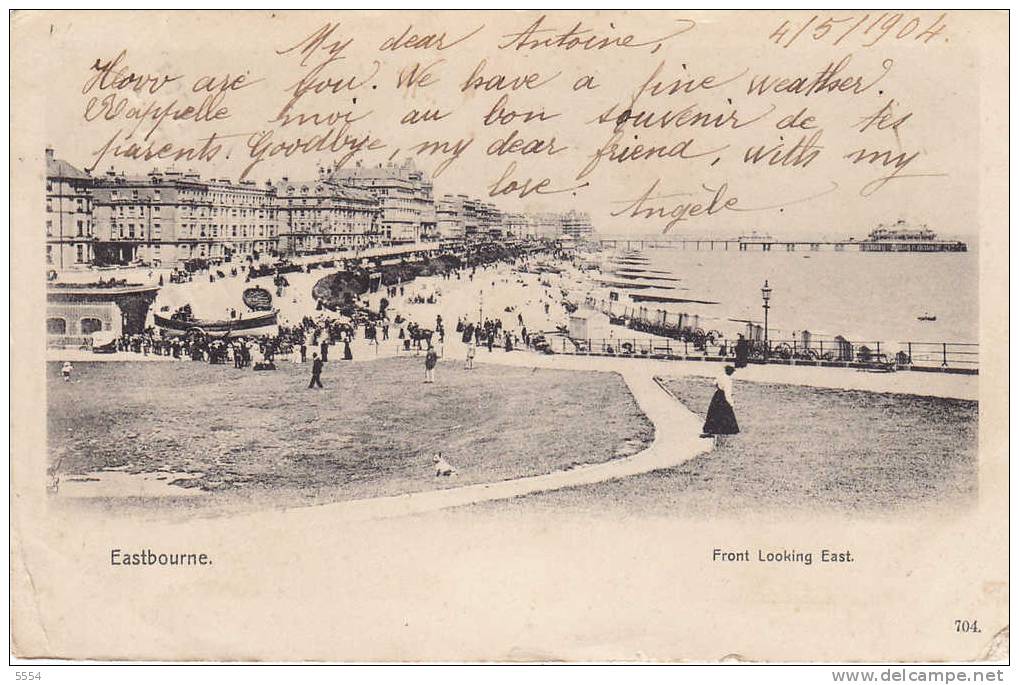 My dear Antoine, 4/5/1904.
How are you. We have a fine weather.
Rappelle moi au bon souvenir de tes
parents. Goodbye, my dear friend, with my
love. Angèle
Eastbourne. Front Looking East.
704.
5554 www.delcampe.net